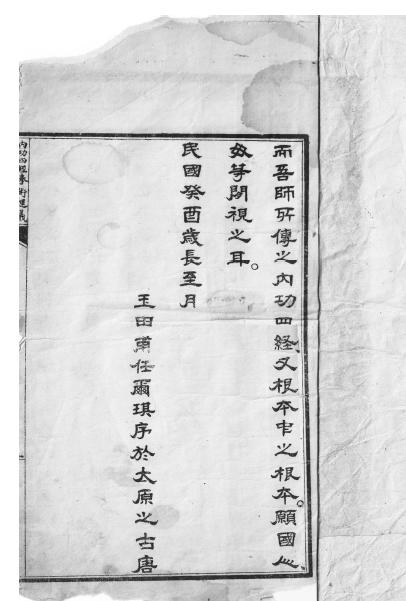 而吾師所傳之內功四經、又根本中之根本。願國人、
毋等閒視之耳。
民國癸酉歲長至月
玉田甫任爾琪序於太原之古唐
內功四經拳術